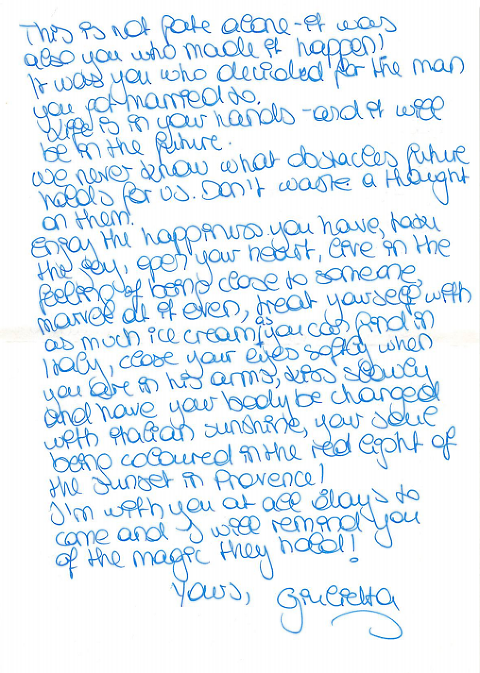 This is not fate alone - it was
also you who made it happen!
It was you who decided for the man
you got married to.
Life is in your hands - and it will
be in the future.
We never know what obstacles future
holds for us. Don't waste a thought
on them.
Enjoy the happiness you have, 
the joy, open your heart, live in the
feeling of being close to someone,
marvel at it even, treat yourself with
as much ice cream as you can find in
Italy, close your eyes softly when
you are in his arms, kiss slowly
and have your body be changed
with italian sunshine, your soul
being coloured in the red light of
the sunset in Provence!
I'm with you at all days to
come and I will remind you
of the magic they hold!
Yours, Giulietta